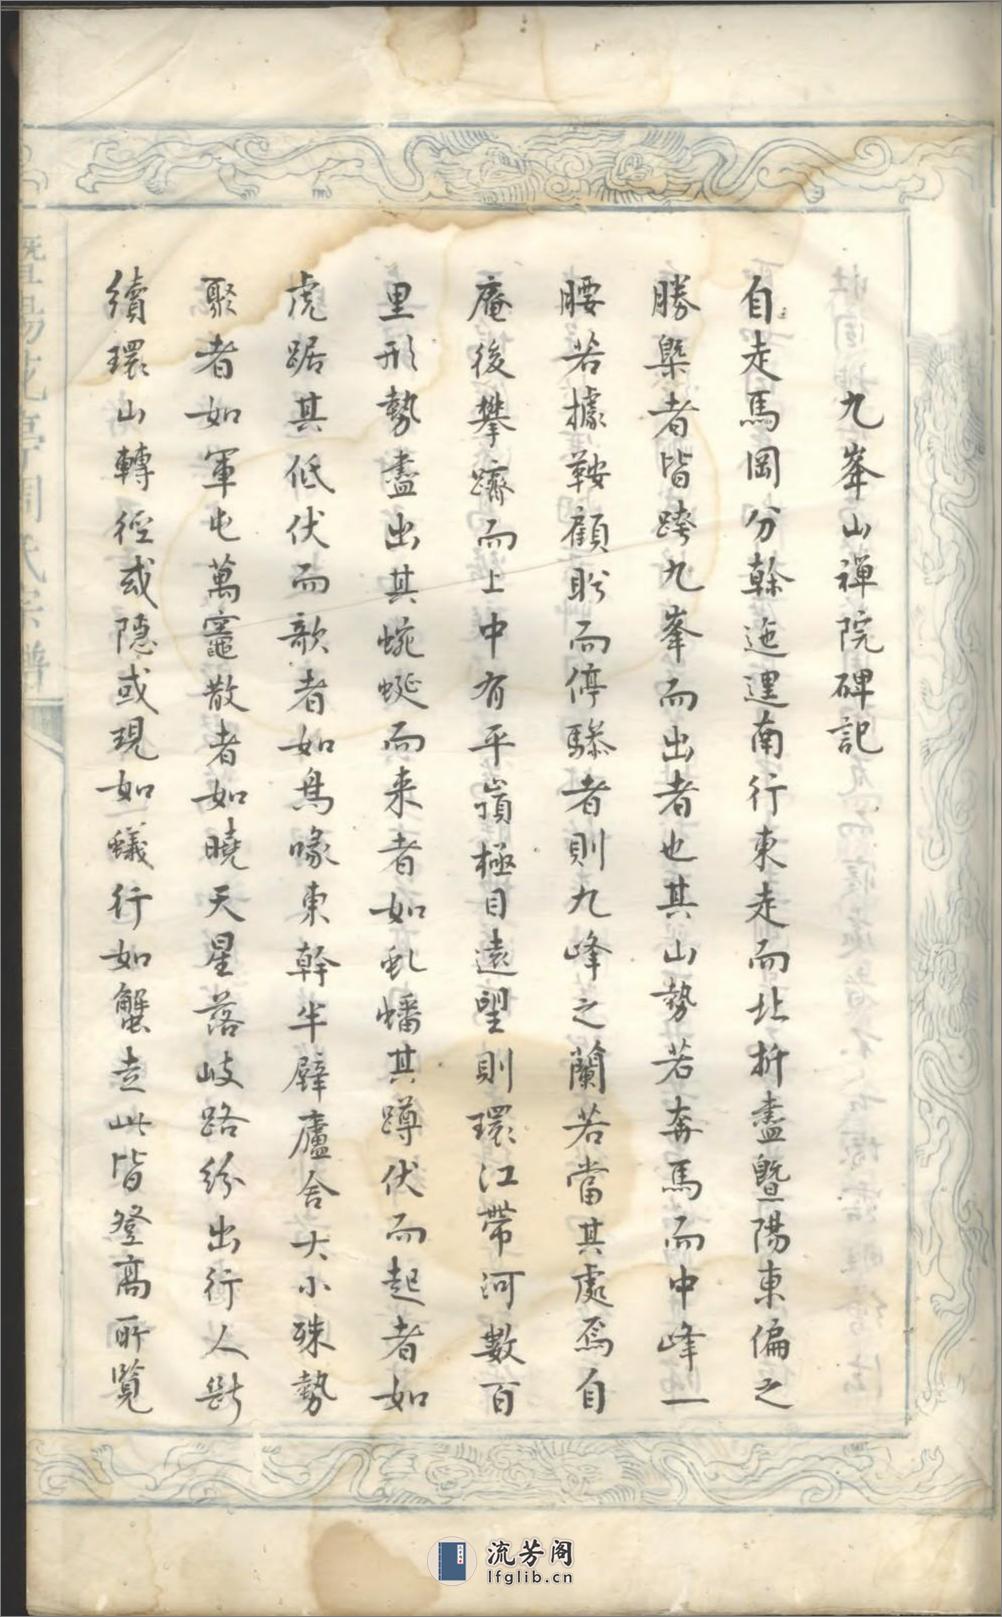 九峯山禪院碑記
自走馬岡分榦迤邐南行東走而北折盡曁陽東偏之
勝槩者皆跨九峯而出者也其山勢若奔馬而中峰一
腰若據鞍顧盻而停驂者則九峰之蘭若當其處焉自
庵後攀躋而上中有平嶺極目遠望則環江帶河數百
里形勢盡出其蜿蜒而来者如虬蟠其蹲伏而起者如
虎踞其低伏而歌者如鳥喙東幹半壁廬舍大小殊勢
聚者如軍屯萬竈散者如曉天星落岐路紛出行人斷
續環山轉徑或隱或現如蟻行如蟹走此皆登高所覽
暨陽花亭周氏宗譜
流芳阁
lfglib.cn